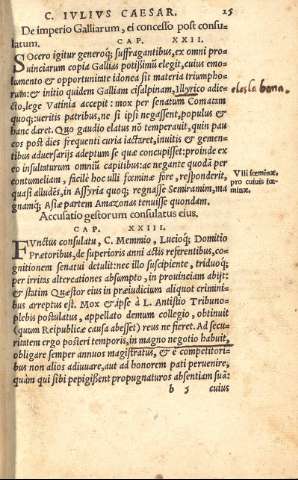 C. IVLIVS CAESAR. 25
De imperio Galliarum, ei concesso post consu
latum. CAP. XXII.
SOcero igitur generoq; suffragantibus, ex omni pro
uinciarum copia Gallias potissimū elegit, cuius emo-
lumento & opportunitate idonea sit materia triumpho-
rum: & initio quidem Galliam cisalpinam, Illyrico adie-
cto, lege Vatinia accepit : mox per senatum Comatam
quoq; : ueritis patribus, ne si ipsi negassent, populus &
hanc daret. Quo gaudio elatus nō temperauit, quin pau
cos post dies frequenti curia iactaret, inuitis & gemen-
tibus aduersarijs adeptum se quæ concupisset: proinde ex
eo insultaturum omniū capitibus: ac negante quodā per
contumeliam, facile hoc ulli fœminæ fore, responderit,
quasi alludēs, in Assyria quoq; regnasse Semiramin, ma
gnamq; Asiæ partem Amazonas tenuisse quondam.
Accusatio gestorum consulatus eius.
CAP. XXIII.
FVnctus consulatu, C. Memmio, Lucioq; Domitio
Prætoribus, de superioris anni actis referentibus, co-
gnitionem senatui detulit: nec illo suscipiente, triduoq;
per irritas altercationes absumpto, in prouinciam abijt:
& statim Quæstor eius in præiudicium aliquot crimini-
bus arreptus est. Mox & ipse à L. Antistio Tribuno
plebis postulatus, appellato demum collegio, obtinuit
(quum Reipublicæ causa abesset) reus ne fieret. Ad secu-
ritatem ergo posteri temporis, in magno negotio habuit,
obligare semper annuos magistratus, & è competitori-
bus non alios adiuuare, aut ad honorem pati peruenire,
quàm qui sibi pepigissent propugnaturos absentiam suā:
b 5 cuius
VIII fœminæ,
pro cuiuis fœ
minæ.